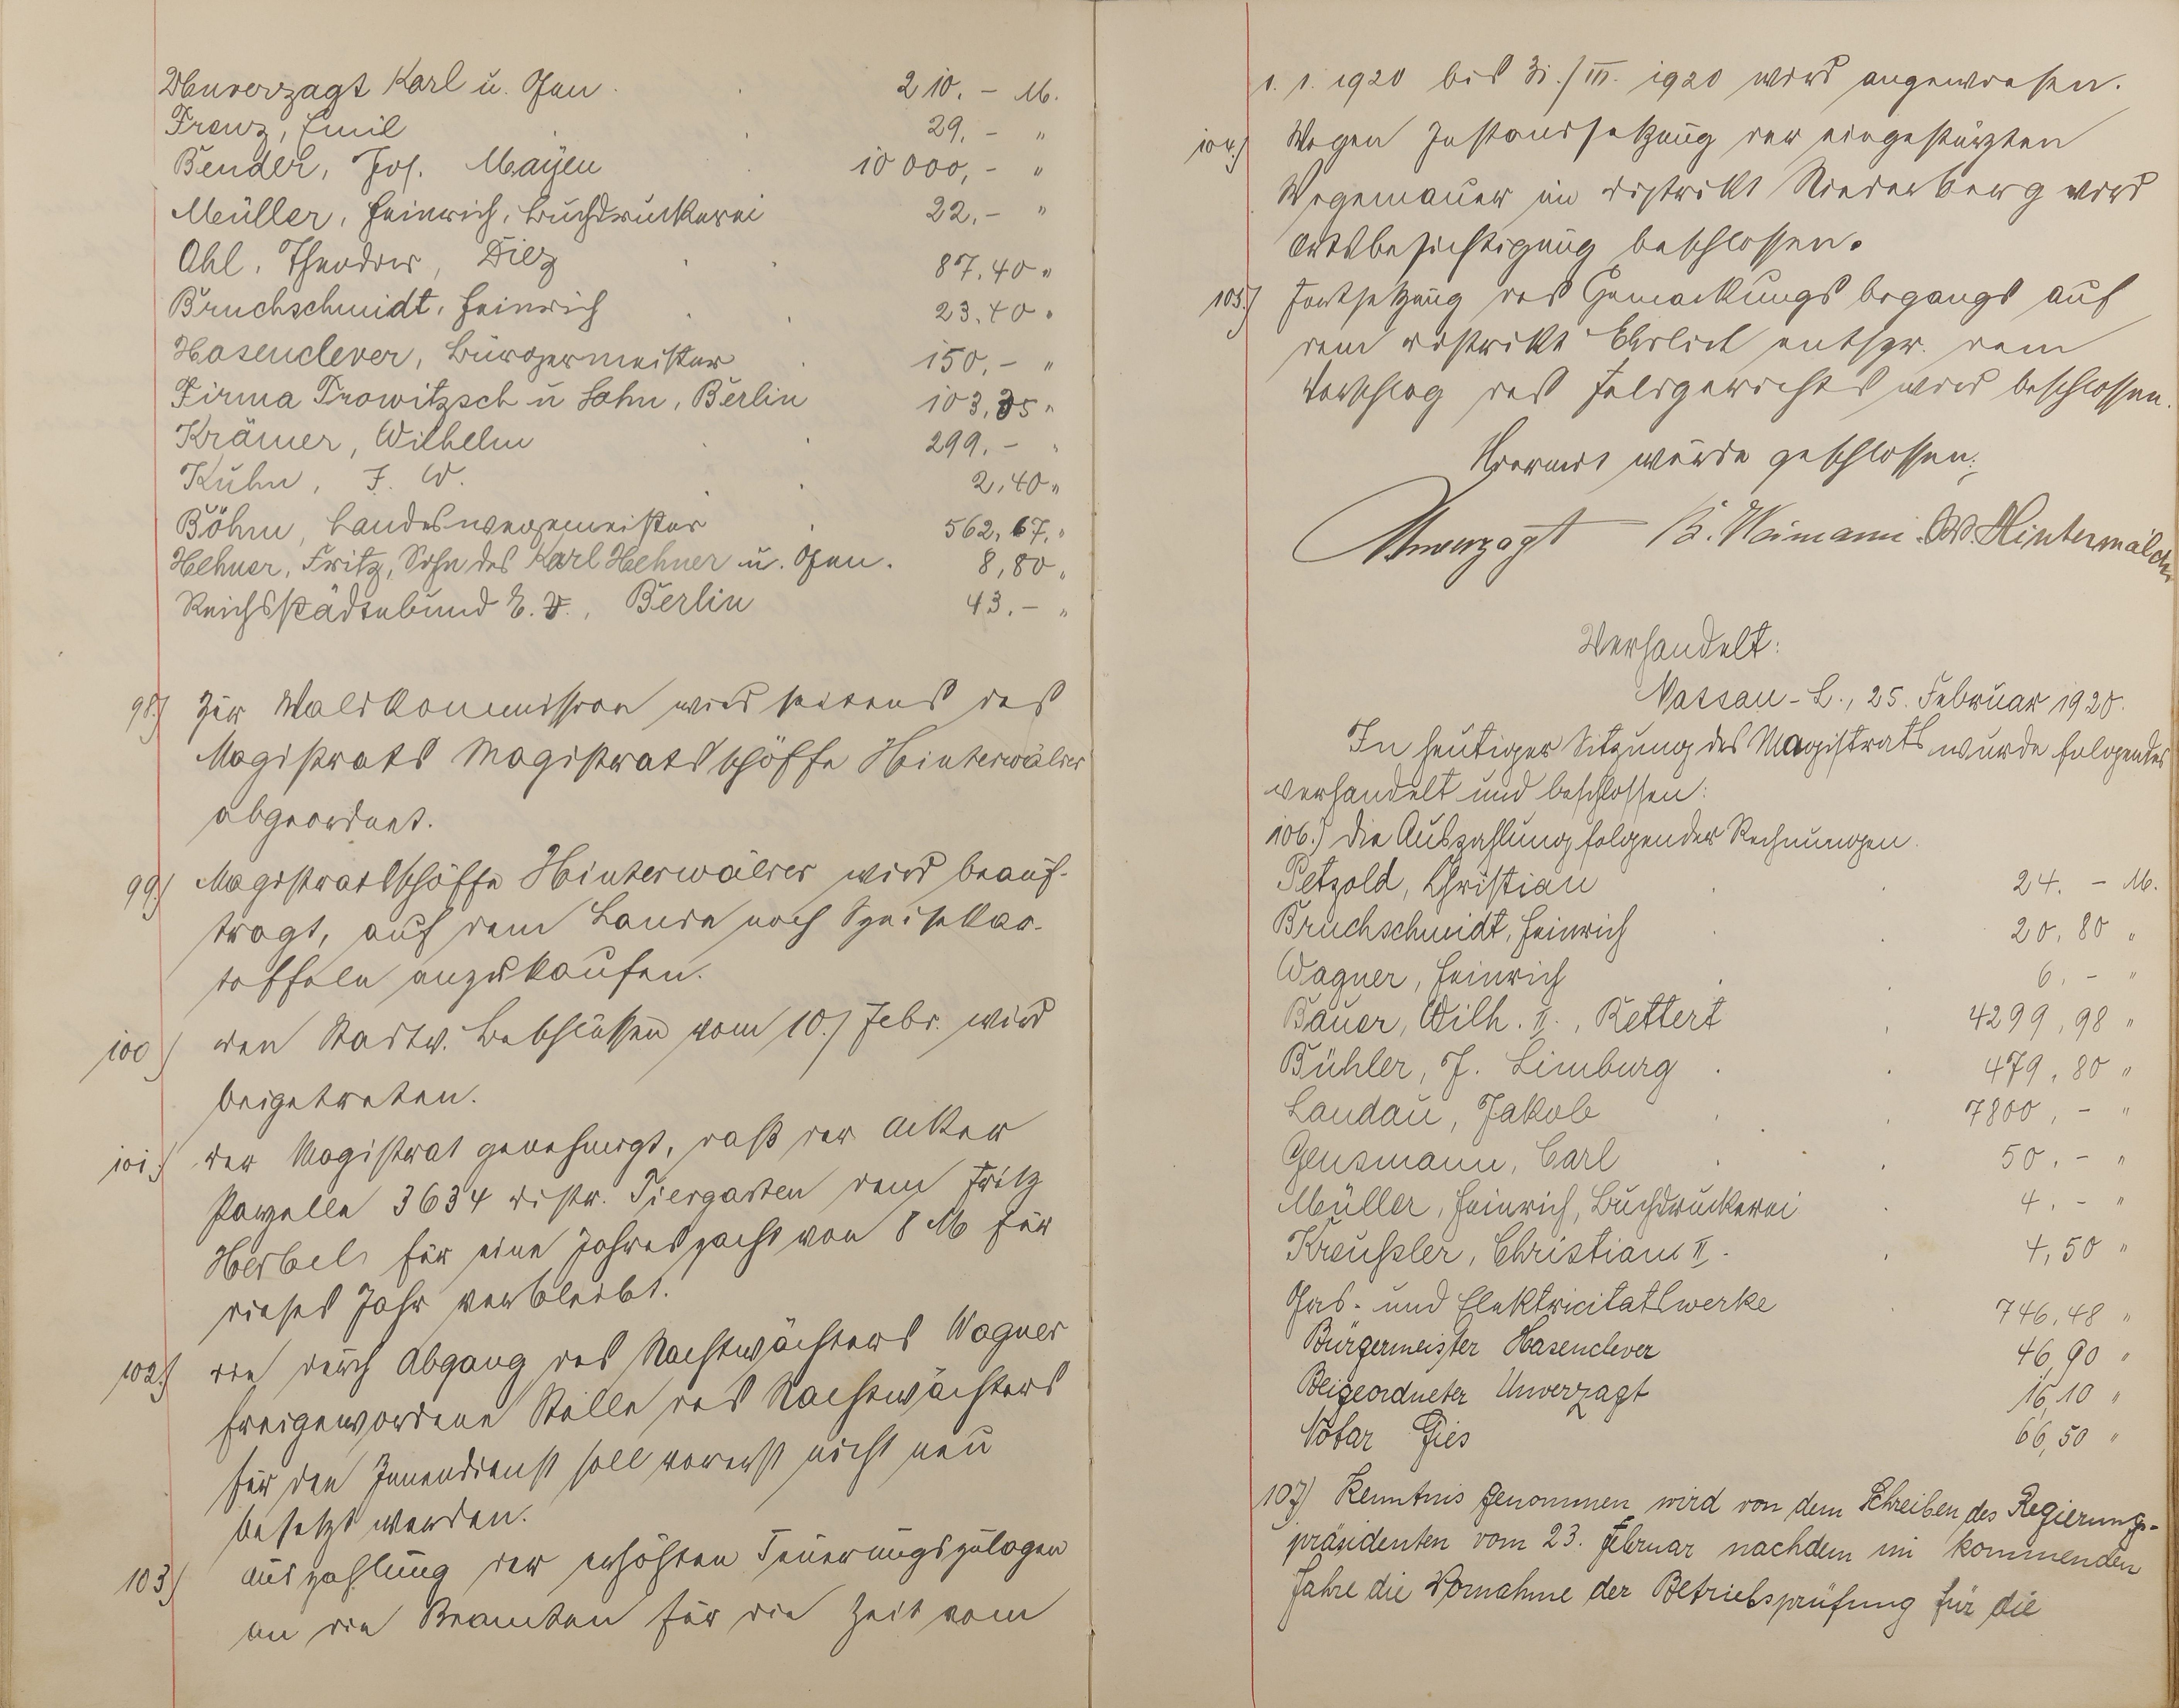 Unverzagt Karl u. Gen. 210.- M.
Franz, Emil 29.- "
Bender, Jos. Mayen 10 000,- "
Müller, Heinrich, Buchdruckerei 22.- "
Ohl, Theodor, Diez 87.40 "
Bruchschmidt, Heinrich 23.40 "
Hasenclever, Bürgermeister 150.- "
Firma Trowitzsch u Sohn, Berlin 103,35 "
Krämer, Wilhelm 299.- "
Kuhn, F. W. 2,40 "
Böhm, Landeswegemeister 562,67. "
Hehner, Fritz, Sohn des Karl Hehner u. Gen. 8,80 "
Reichsstädtebund E. V., Berlin 43.- "
98.) Zur Waldkommission wird seitens des
Magistrats Magistratsschöffe Hinterwälder
abgeordnet.
99.) Magistratsschöffe Hinterwälder wird beauf-
tragt, auf dem Lande noch Speisekar-
toffeln anzukaufen.
100.) den Stadtv. Beschlüssen vom 10./ Febr. wird
beigetreten.
101.) der Magistrat genehmigt, daß der Acker
Parzelle 3634 distr. Tiergarten dem Fritz
Herbel für eine Jahrespacht von 8 M für
dieses Jahr verbleibt.
102.) die durch Abgang des Nachtwächters Wagner
freigewordene Stelle des Nachtwächters
für den Innendienst soll vorerst nicht neu
besetzt werden.
103.) Auszahlung der erhöhten Teuerungszulagen
an die Beamten für die Zeit vom
1. 1. 1920 bis 31./III. 1920 wird angewiesen.
104.) Wegen Instandsetzung der eingestürzten
Wegemauer im distrikt Niederberg wird
Ortsbesichtigung beschlossen.
105.) Fortsetzung des Gemarkungsbegangs auf
dem distrikt Ehrlich entspr. dem
Vorschlag des Feldgerichts wird beschlossen.
Hiermit wurde geschlossen:
Unverzagt K. Heimann W. Hinterwälder
Verhandelt:
Nassau-L., 25. Februar 1920.
In heutiger Sitzung des Magistrats wurde folgendes
verhandelt und beschlossen:
106.) Die Auszahlung folgender Rechnungen.
Petzold, Christian 24.- M.
Bruchschmidt, Heinrich 20,80 "
Wagner, Heinrich 6.- "
Bauer, Wilh. II., Rettert 4299,98 "
Bühler, J. Limburg 479,80 "
Landau, Jakob 7800,- "
Gensmann, Carl 50.- "
Müller, Heinrich, Buchdruckerei 4.- "
Kreußler, Christian II. 4,50 "
Gas- und Elektricitatswerke 746,48 "
Bürgermeister Hasenclever 46,90 "
Beigeordneter Unverzagt 16,10 "
Notar Gies 66,50 "
107.) Kenntnis genommen wird von dem Schreiben des Regierungs-
präsidenten vom 23. Februar nachdem im kommenden
Jahre die Vornahme der Betriebsprüfung für die